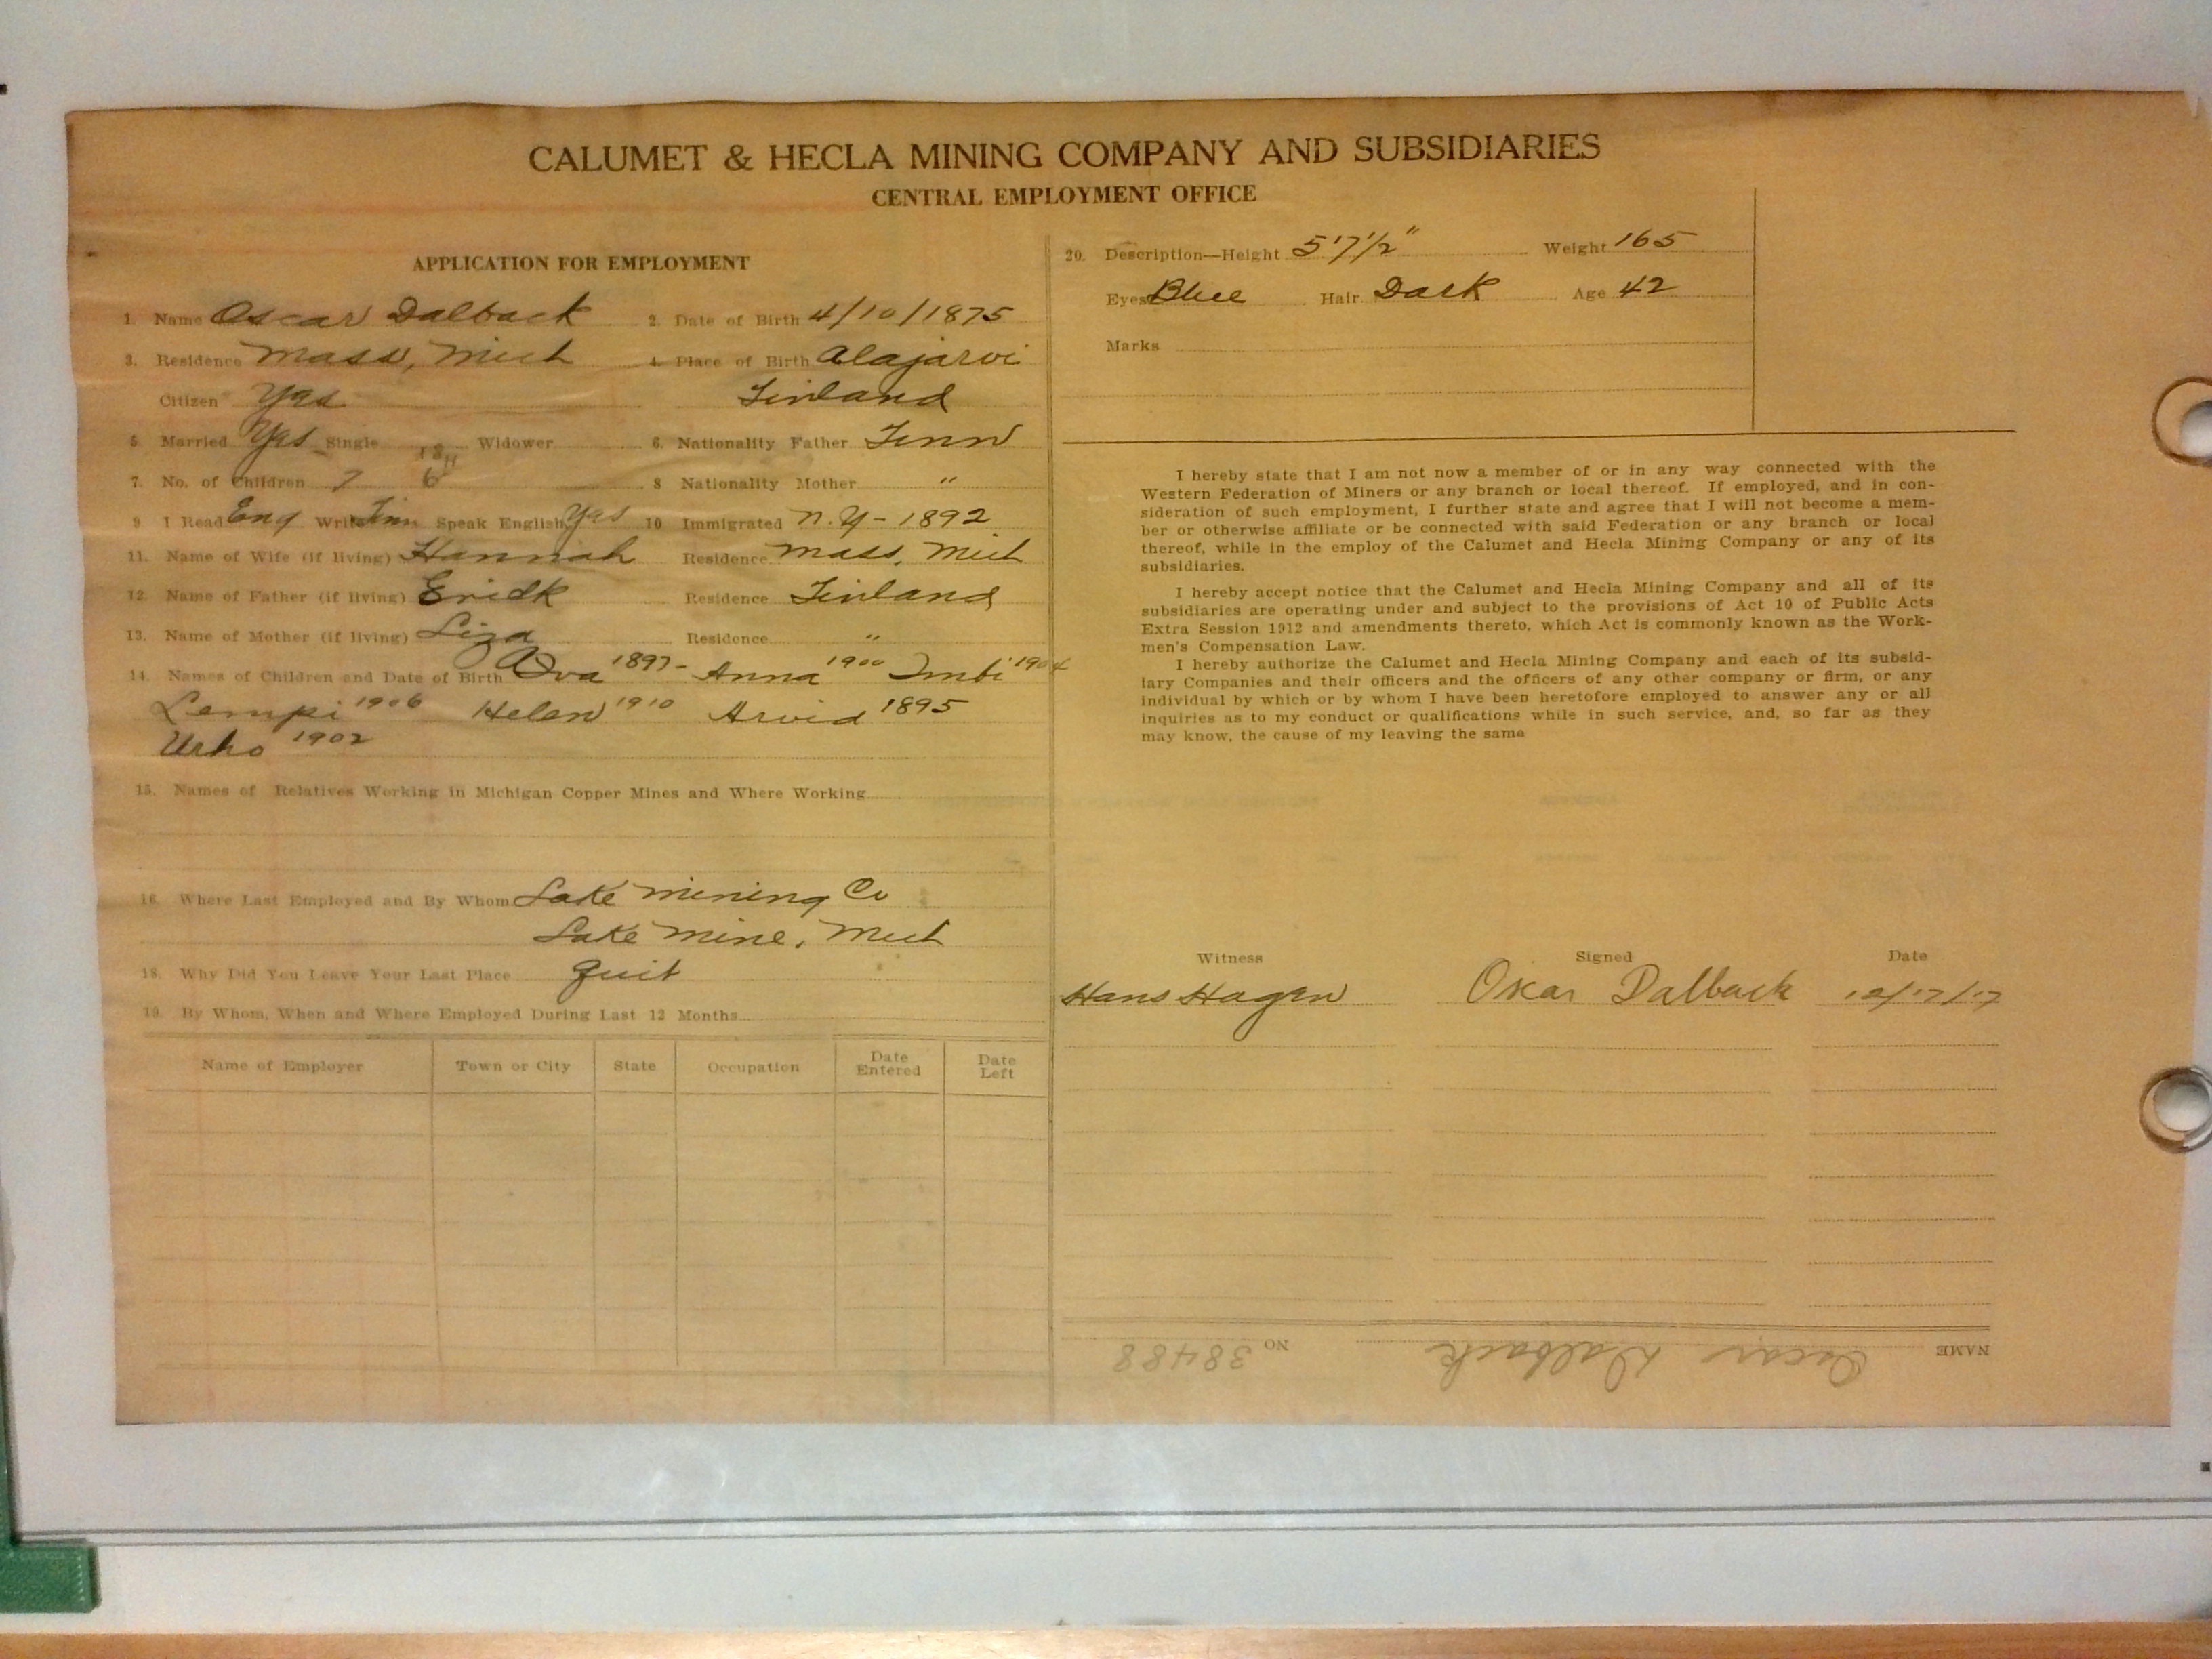 CALUMET & HECLA MINING COMPANY AND SUBSIDIARIES
CENTRAL EMPLOYMENT OFFICE
APPLICATION FOR EMPLOYMENT
1. Name Oscar Dalback 2. Date of Birth 4/10/1875
3. Residence Mass, Mich 4. Place of Birth Alajarvi
Citizen Yas Finland
5. Married Yas Single Widower 6. Nationality Father Finn
7. No. of Children 7 6 8 Nationality Mother "
9 I Read Eng Write Finn Speak English Yas 10 Immigrated N.Y - 1892
11. Name of Wife (if living) Hannah Residence Mass, Mich
12. Name of Father (if living) Eridk Residence Finland
13. Name of Mother (if living) Liza Residence "
14. Names of Children and Date of Birth 1897- Anna 1900 Imbi 1904
Lempi 1906 Helen 1910 Arvid 1895
Urho 1902
15. Names of Relatives Working in Michigan Copper Mines and Where Working
16. Where Last Employed and By Whom Lake Mining Co
Lake Mine, Mich
18. Why Did You Leave Your Last Place Quit
19. By Whom, When and Where Employed During Last 12 Months
Name of Employer Town or City State Occupation Date Entered Date Left
20. Description—Height 5'7½" Weight 165
Eyes Blue Hair Dark Age 42
Marks
I hereby state that I am not now a member of or in any way connected with the
Western Federation of Miners or any branch or local thereof. If employed, and in con-
sideration of such employment, I further state and agree that I will not become a mem-
ber or otherwise affiliate or be connected with said Federation or any branch or local
thereof, while in the employ of the Calumet and Hecla Mining Company or any of its
subsidiaries.
I hereby accept notice that the Calumet and Hecla Mining Company and all of its
subsidiaries are operating under and subject to the provisions of Act 10 of Public Acts
Extra Session 1912 and amendments thereto, which Act is commonly known as the Work-
men's Compensation Law.
I hereby authorize the Calumet and Hecla Mining Company and each of its subsid-
iary Companies and their officers and the officers of any other company or firm, or any
individual by which or by whom I have been heretofore employed to answer any or all
inquiries as to my conduct or qualifications while in such service, and, so far as they
may know, the cause of my leaving the same
Witness Signed Date
Hans Hagen Oskar Dalback 12/17/17
NAME Oscar Dalback NO 38488